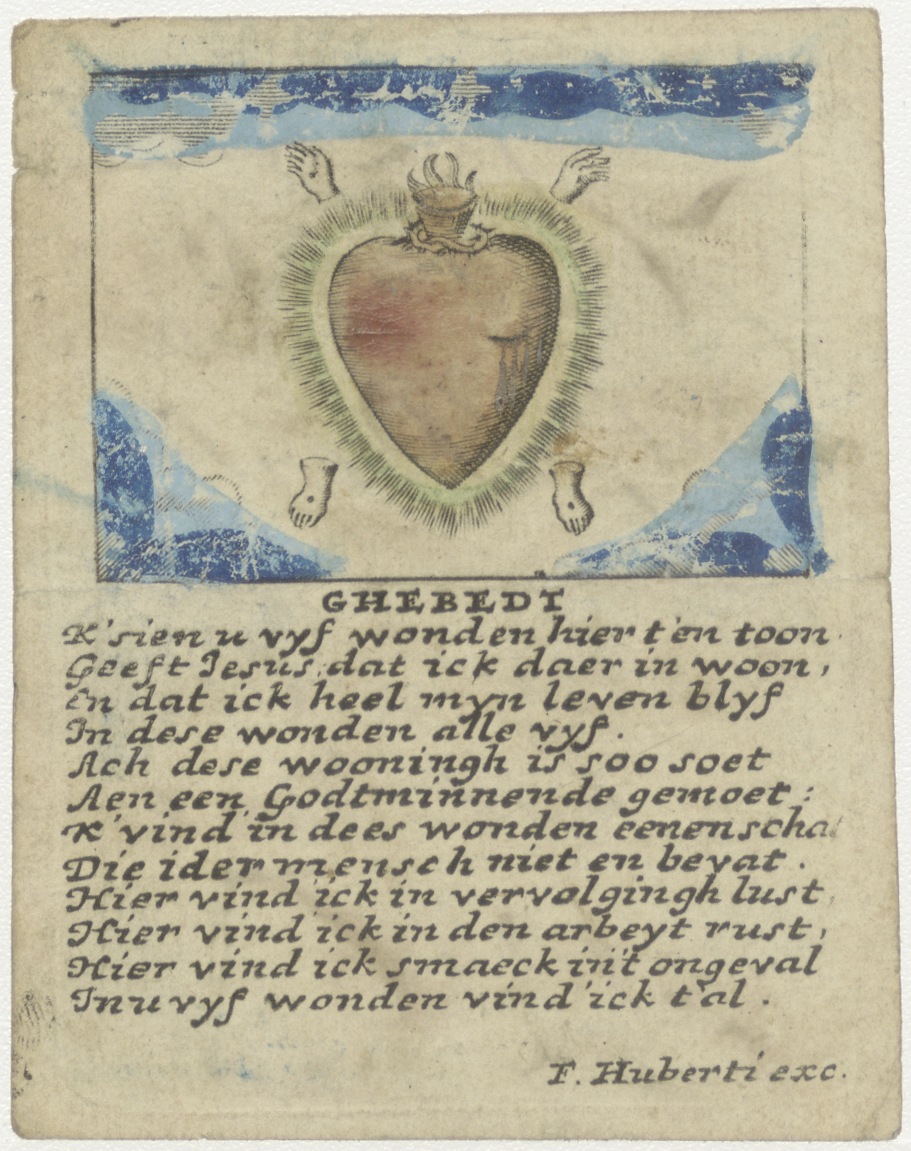 GHEBEDT
K'sien u vyf wonden hier t'en toon
Geeft Jesus, dat ick daer in woon,
En dat ick heel myn leven blyf
In dese wonden alle vyf.
Ach dese wooningh is soo soet
Aen een Godtminnende gemoet:
K'vind in dees wonden eenen scha
Die ider mensch niet en bevat.
Hier vind ick in vervolgingh lust,
Hier vind ick in den arbeyt rust,
Hier vind ick smaeck in't ongeval
In u vyf wonden vind ick t'al.
F. Huberti exc.